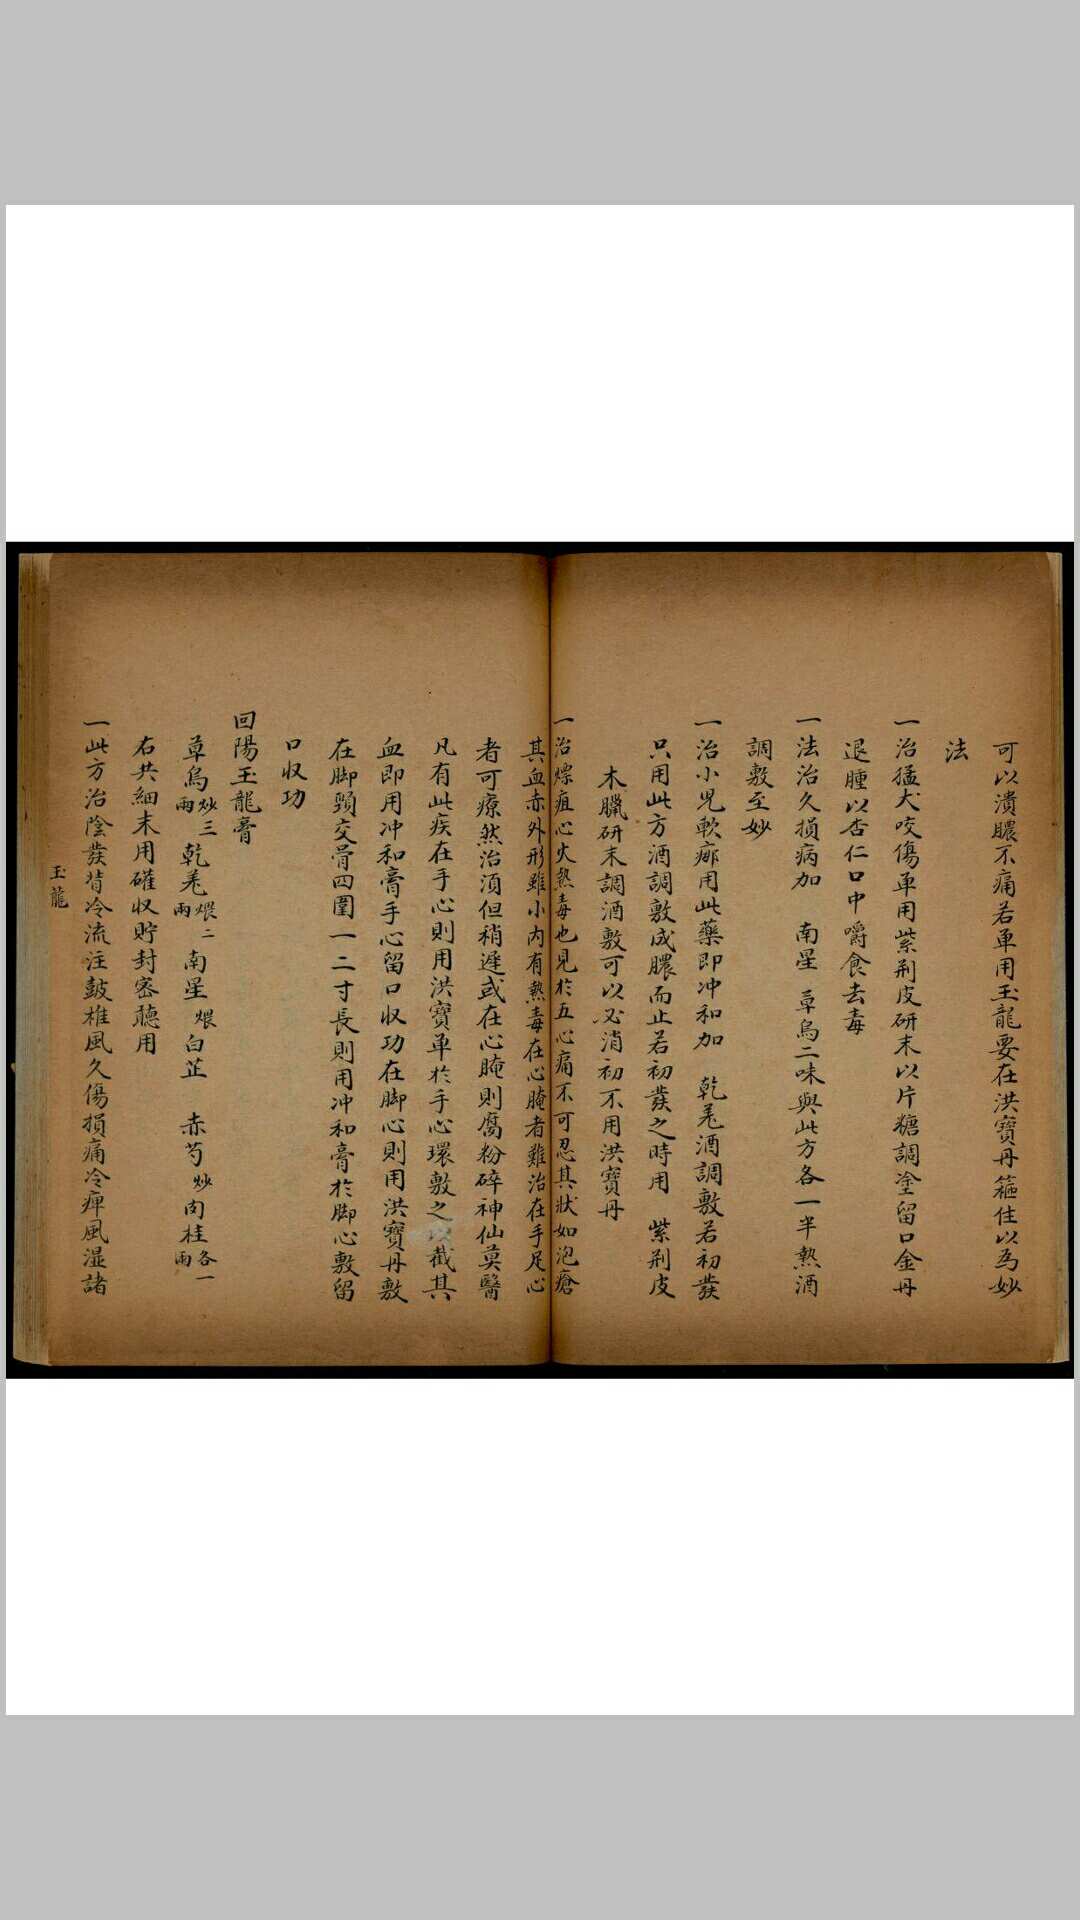 可以潰膿不痛若单用玉龍要在洪寶丹箍住以為妙
法
一治猛犬咬傷单用紫荆皮研末以片糖調塗留口金丹
退腫以杏仁口中嚼食去毒
一法治久損病加　南星　草烏二味與此方各一半熱酒
調敷至妙
一治小児軟癤用此藥即冲和加　乾羌酒調敷若初發
只用此方酒調敷成膿而止若初發之時用　紫荆皮
木臘研末調酒敷可以必消初不用洪寶丹
一治熛疽心火熱毒也見於五心痛不可忍其狀如泡瘡
其血赤外形雖小内有熱毒在心腌者難治在手足心
者可療然治須但稍遲或在心腌則腐粉碎神仙莫醫
凡有此疾在手心則用洪寶单於手心環敷之以截其
血即用冲和膏手心留口収功在脚心則用洪寶丹敷
在脚頸交骨四圍一二寸長則用冲和膏於脚心敷留
口収功
回陽玉龍膏
草烏炒三兩　乾羌煨二兩　南星煨白芷　赤芍炒肉桂各一兩
右共細末用礶収貯封密聽用
一此方治陰發背冷流注鼓椎風久傷損痛冷痺風湿諸
玉龍